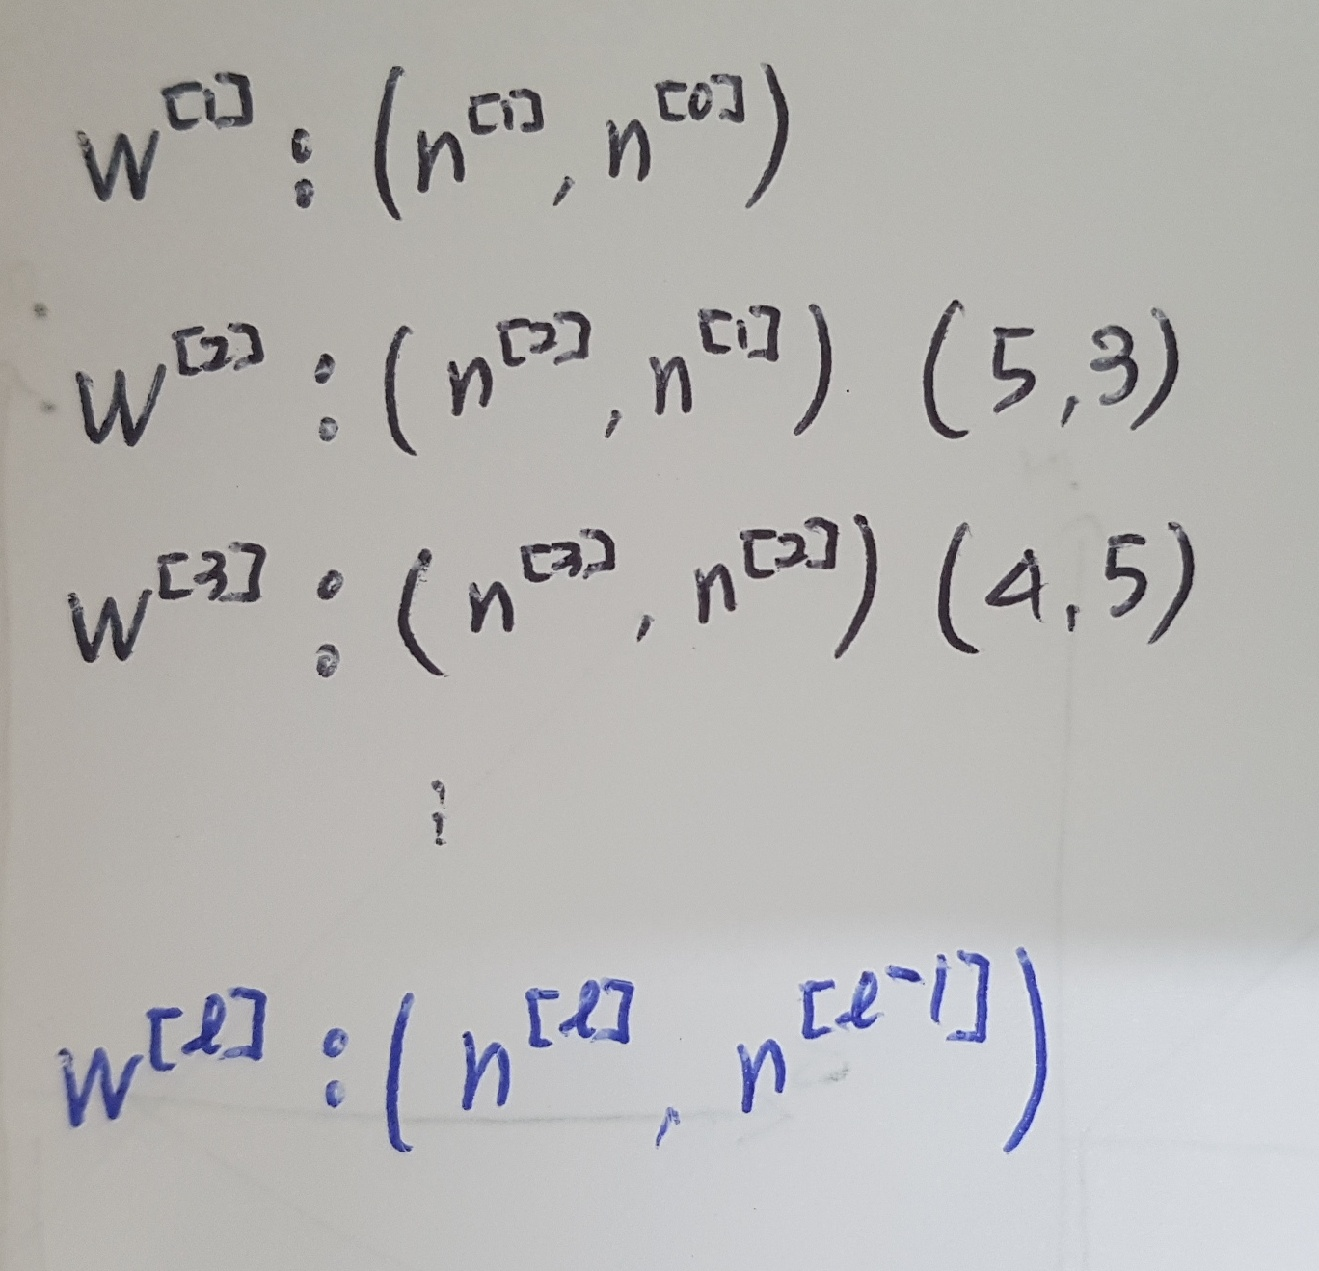 W^[1] : (n^[1], n^[0])
W^[2] : (n^[2], n^[1]) (5,3)
W^[3] : (n^[3], n^[2]) (4,5)
⋮
W^[l] : (n^[l], n^[l-1])